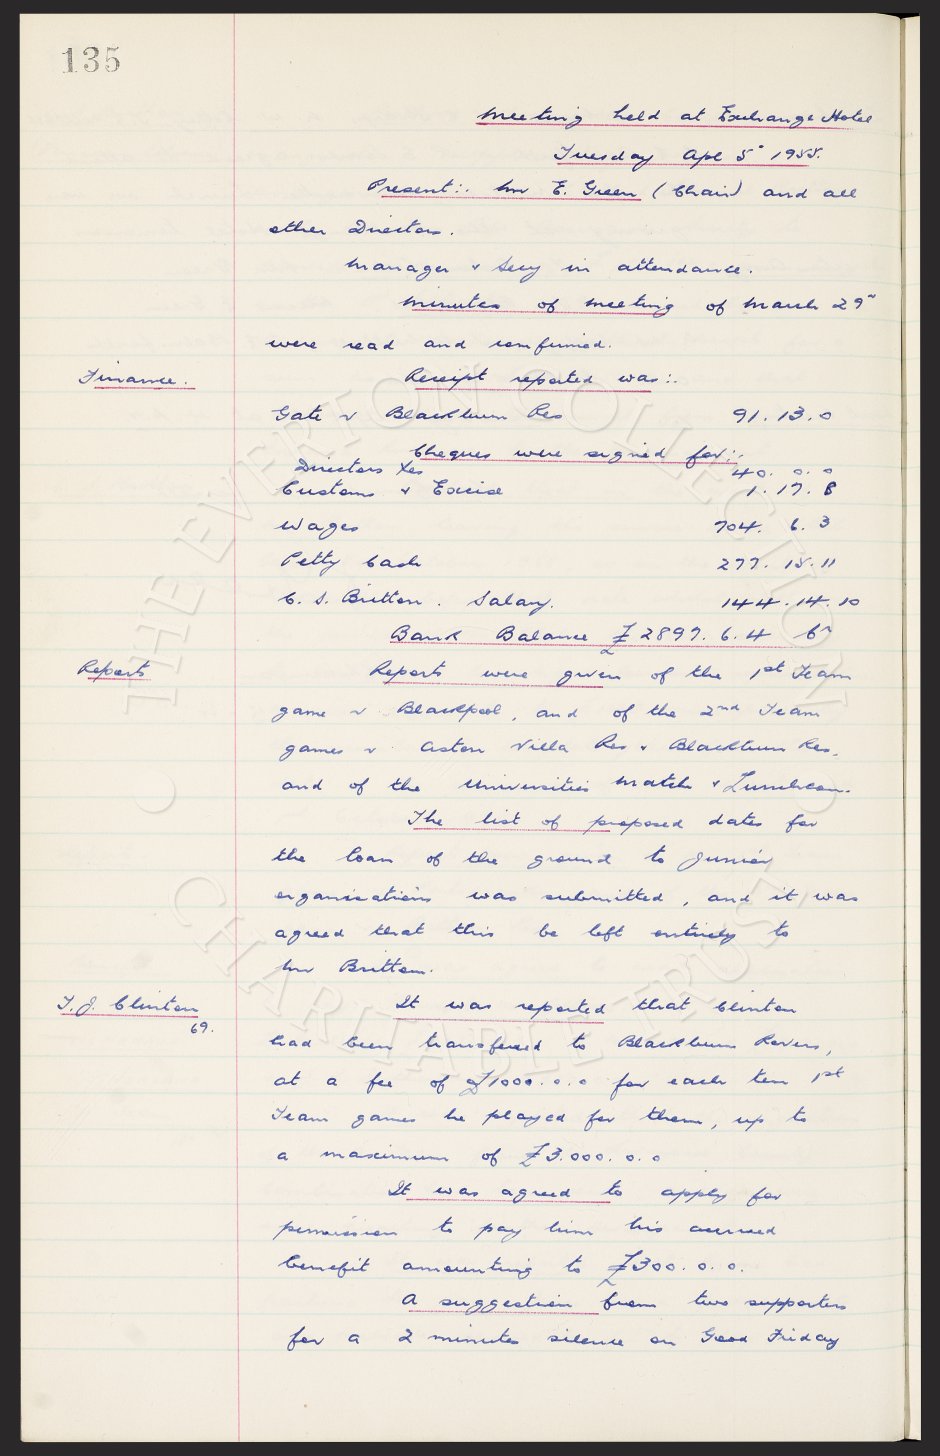 135
Meeting held at Exchange Hotel
Tuesday Apl 5" 1955.
Present:. Mr E. Green (Chair) and all
other Directors.
Manager & Secy in attendance.
Minutes of meeting of March 29"
were read and confirmed.
Finance. Receipt reported was:.
Gate v Blackburn Res 91. 13. 0
Cheques were signed for:.
Directors 40. 0. 0
Customs & Excise 1. 17. 8
Wages 704. 6. 3
Petty Cash 277. 15. 11
C. S. Britton. Salary. 144. 14. 10
Bank Balance £2897. 6. 4 Cr
Reports Reports were given of the 1st Team
game v Blackpool, and of the 2nd Team
games v Aston Villa Res & Blackburn Res,
and of the Universities Match & Luncheon.
The list of proposed dates for
the loan of the ground to Junior
organisations was submitted, and it was
agreed that this be left entirely to
Mr Britton.
T. J. Clinton It was reported that Clinton
69.
had been transferred to Blackburn Rovers,
at a fee of £1000. 0. 0 for each ten 1st
Team games he played for them, up to
a maximum of £3.000. 0. 0
It was agreed to apply for
permission to pay him his accrued
benefit amounting to £300. 0. 0.
A suggestion from two supporters
for a 2 minutes silence on Good Friday
THE EVERTON COLLECTION
CHARITABLE TRUST